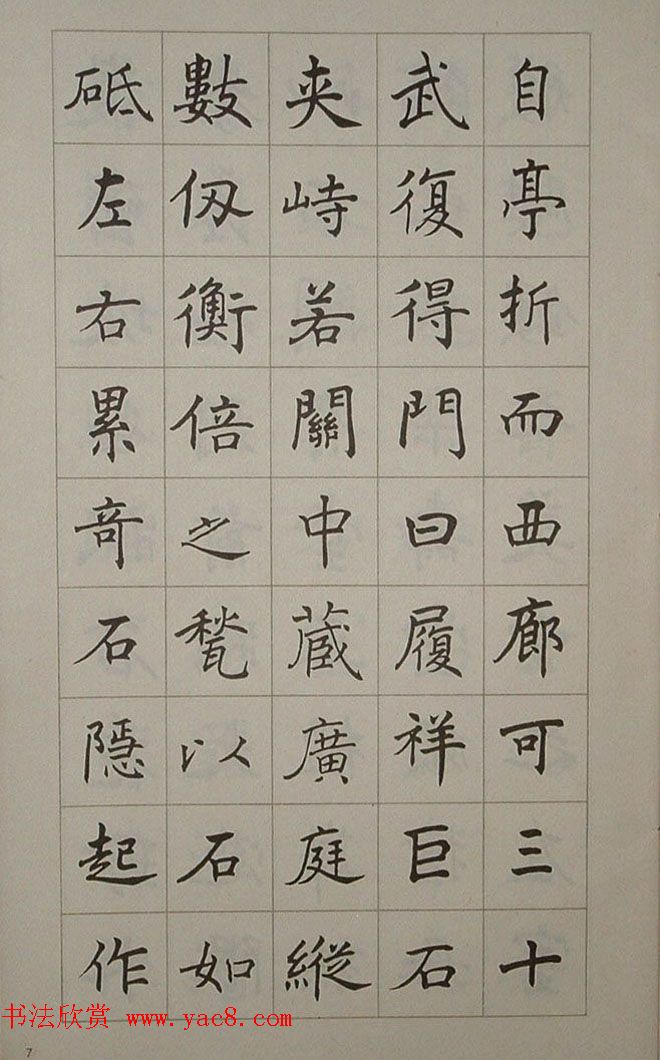 自亭折而西廊可三十
武復得門曰履祥巨石
夾峙若關中蔵廣庭縱
數仭衡倍之甃以石如
砥左右累奇石隱起作
书法欣赏 www.yac8.com
7